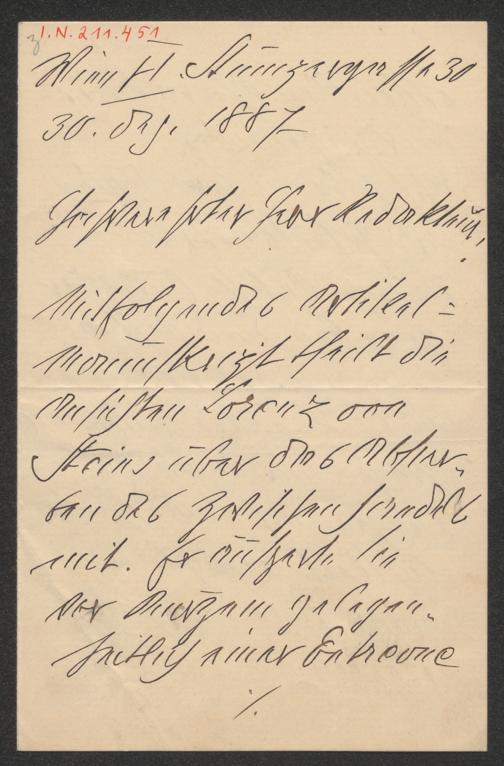 I.N. 211.451
Wien VI. Stumpergasse 30
30. Dez. 1887
Hochverehrter Herr Redakteur!
Mitfolgendes Artikel-
Manuskript theilt die
Ansichten Lorenz von
Steins über das Abster-
ben des Zwischenhandels
mit. Er äußerte sie
vor Kurzem gelegen-
heitlich einer Entrevue
./.